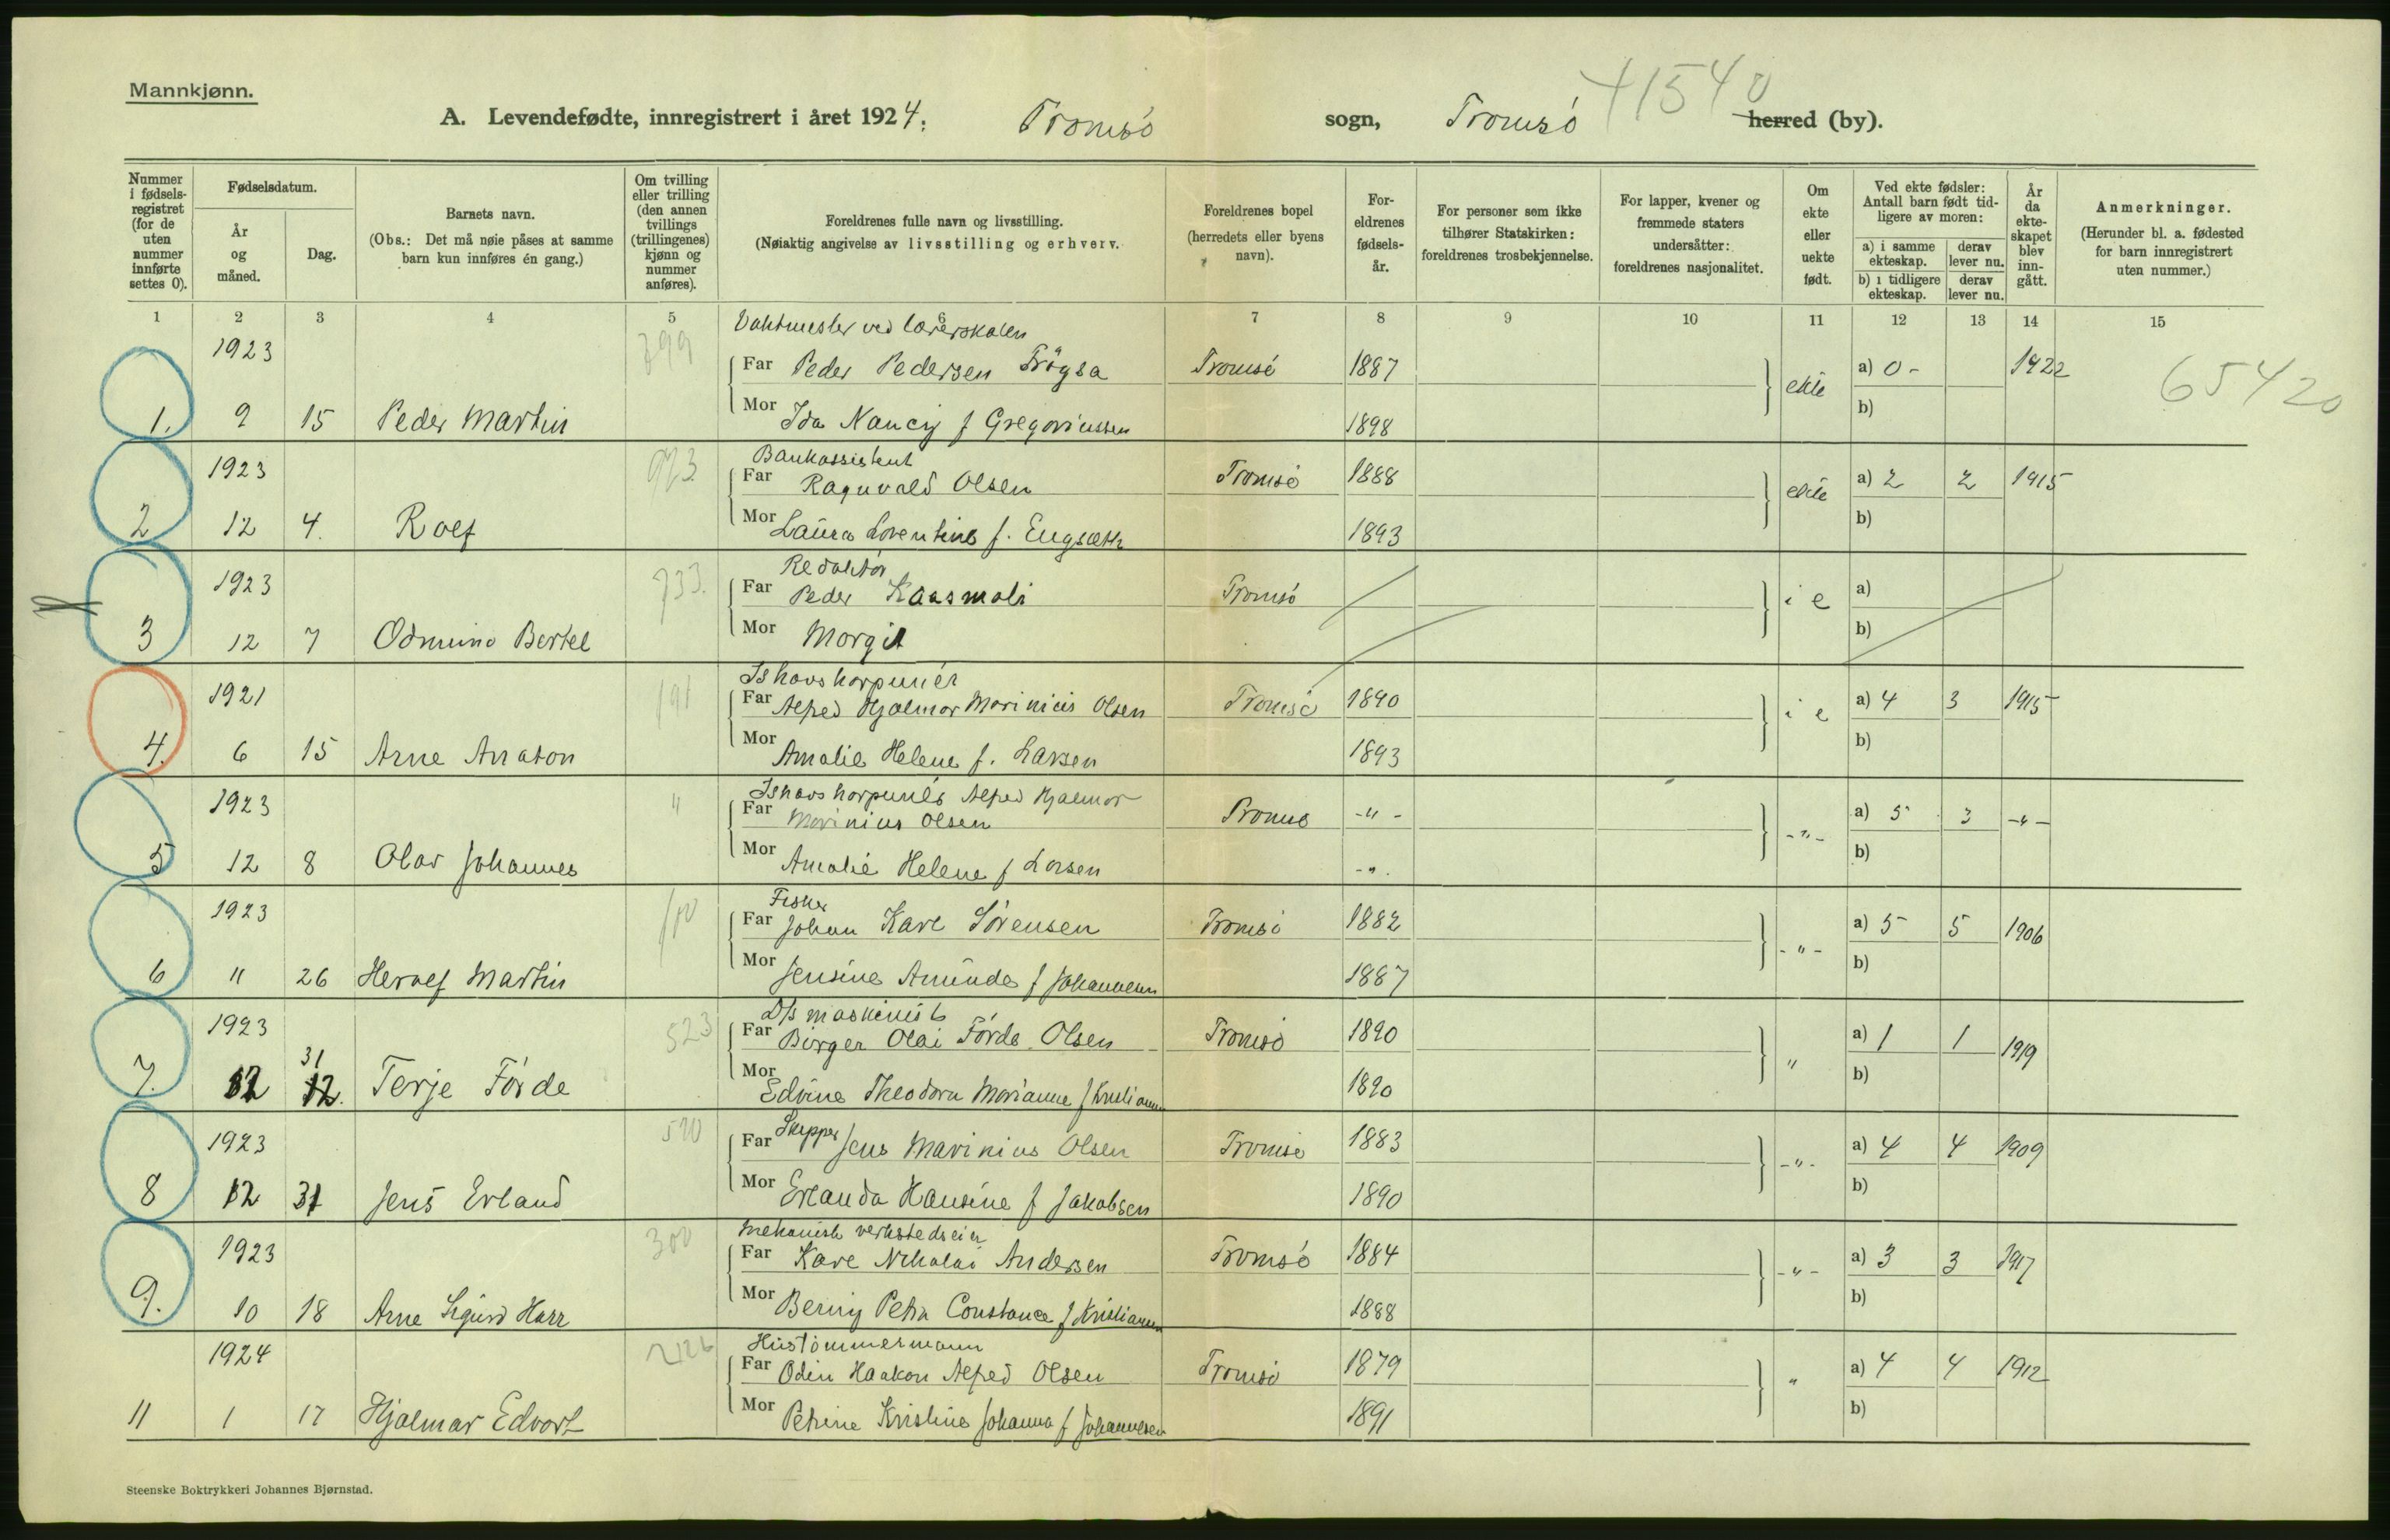 Mannkjønn.
41540
A. Levendefødte, innregistrert i året 1924. Tromsö sogn, Tromsö herred (by).
Nummer i fødsels-registret (for de uten nummer innførte settes 0).
Fødselsdatum.
År og måned.
Dag.
Barnets navn.
(Obs.: Det må nøie påses at samme barn kun innføres én gang.)
Om tvilling eller trilling (den annen tvillings (trillingenes) kjønn og nummer anføres).
Foreldrenes fulle navn og livsstilling.
(Nøiaktig angivelse av livsstilling og erhverv.
Foreldrenes bopel (herredets eller byens navn).
For-eldrenes fødsels-år.
For personer som ikke tilhører Statskirken: foreldrenes trosbekjennelse.
For lapper, kvener og fremmede staters undersåtter: foreldrenes nasjonalitet.
Om ekte eller uekte født.
Ved ekte fødsler: Antall barn født tid-ligere av moren:
a) i samme ekteskap. derav lever nu.
b) i tidligere ekteskap. derav lever nu.
År da ekte-skapet blev inn-gått.
Anmerkninger.
(Herunder bl. a. fødested for barn innregistrert uten nummer.)
1 2 3 4 5 6 7 8 9 10 11 12 13 14 15
Vaktmester ved lærerskolen
1923 399 Far Peder Pedersen Tromsö 1887 ekte a) 0 - 1922 65420
1. 9 15 Peder Martin Mor Ida Nancy f Gregoriussen 1898 b)
Bankassistent
1923 923 Far Ragnvald Olsen Tromsö 1888 ekte a) 2 2 1915
2 12 4. Rolf Mor Laura Lorentine f. Engsæth 1893 b)
Redaktör
1923 733. Far Peder Kaasmoli Tromsö i e a)
3 12 7 Odmund Bertel Mor Margit b)
Ishavsharpunér
1921 191 Far Alfred Hjalmar Marinius Olsen Tromsö 1890 i e a) 4 3 1915
4. 6 15 Arne Anaton Mor Amalie Helene f. Larsen 1893 b)
Ishavsharpunér Alfred Hjalmar
1923 " Far Marinius Olsen Tromsö -"- -"- a) 5 3 -"-
5 12 8 Olav Johannes Mor Amalie Helene f Larsen -". b)
Fisker
1923 Far Johan Karl Sörensen Tromsö 1882 -"- a) 5 5 1906
6 11 26 Herolf Martin Mor Jensine Amunda f Johannesen 1887 b)
D/s maskinist
1923 523 Far Birger Olai Förde Olsen Tromsö 1890 " a) 1 1 1919
31
7. 12 12. Terje Förde Mor Edvine Theodora Marianne f Kristiansen 1890 b)
1923 510 Far Skipper Jens Marinius Olsen Tromsö 1883 -"- a) 4 4 1909
8 12 31 Jens Erland Mor Erlanda Hansine f Jakobsen 1890 b)
Mekanisk verkstedseier
1923 300 Far Karl Nikolai Andersen Tromsö 1884 -"- a) 3 3 1917
9. 10 18 Arne Sigurd Harr Mor Berny Petra Constance f Kristiansen 1888 b)
Hustömmermann
1924 2126 Far Odin Haakon Alfred Olsen Tromsö 1879 " a) 4 4 1912
11 1 17 Hjalmar Edvart Mor Petrine Kristine Johanna f Johannesen 1891 b)
Steenske Boktrykkeri Johannes Bjørnstad.